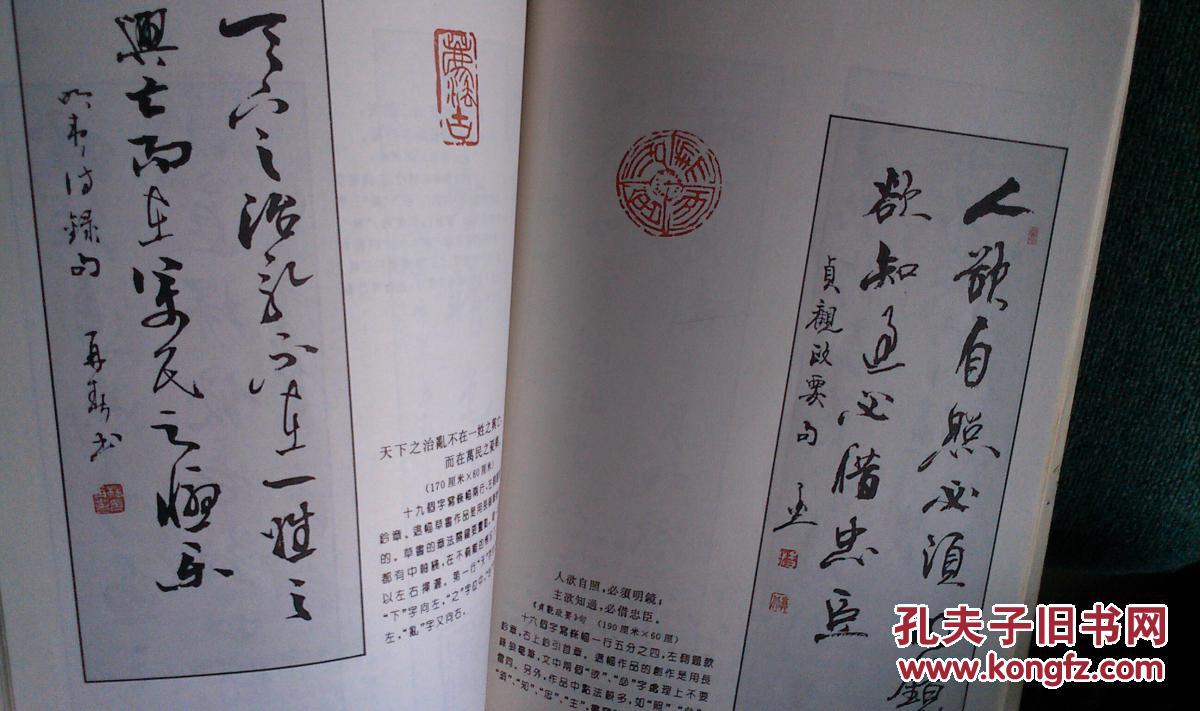 天下之治亂不在一姓之
興亡而在萬民之憂樂
明夷待錄句
天下之治亂不在一姓之興亡
而在萬民之憂樂
(170厘米×60厘米)
十九個字寫條幅兩行,左側
鈐章。這幅草書作品是用長
的。草書的章法關鍵要靈動
都有中軸綫,在不
以左右揮灑。第一行“天”
“下”字向左,“之”字位中,“治”
左,“亂”字又向右。
人欲自照必須明鏡
欲知過必借忠臣
貞觀政要句
人欲自照,必須明鏡;
主欲知過,必借忠臣。
《貞觀政要》句 (190厘米×60厘米)
十八個字寫條幅一行五分之四,左側題款
鈐章,右上鈐引首章。這幅作品的創作是用長
鋒純毫筆,文中兩個“欲”、“必”字處理上不要
雷同。另外,作品中點法較多,如“照”、“必”
“須”、“知”、“忠”、“主”
孔夫子旧书网
www.kongfz.com